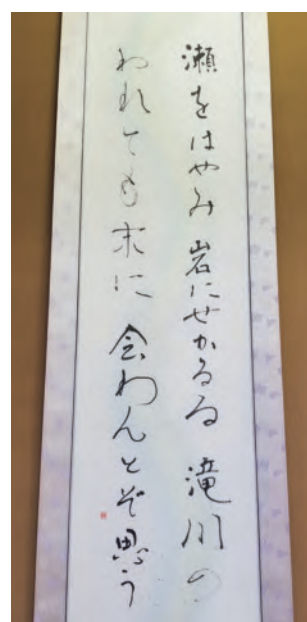 瀬をはやみ 岩にせかるる 滝川の
われても末に 会わんとぞ思う